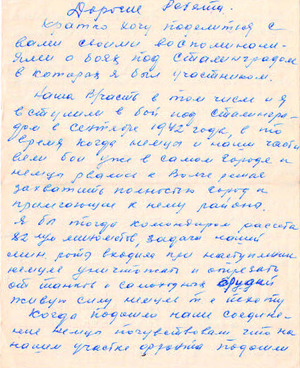 Дорогие Ребята.
Кратко хочу поделится с
вами своими воспомина-
ями о боях под Сталинградом
в которая я был участником.
Наша В/часть в том числе и я
вступили в бой под Сталингра-
дом в сентябре 1942 года, в то
время когда немцы и наши части
вели бои уже в самом городе и
немцы рвались к Волге решая
захватить полностью город и
прилегающие к нему района.
Я был тогда командиром расчета
82 мм минометов, задача нашей
мин роты входило при наступлении
немцев уничтожать и отрезать
от танков и самоходных орудий
живую силу немцев т е пехоту
Когда подошло наше соедине-
ние немцы почувствовали что на
нашем участке фронта подошли